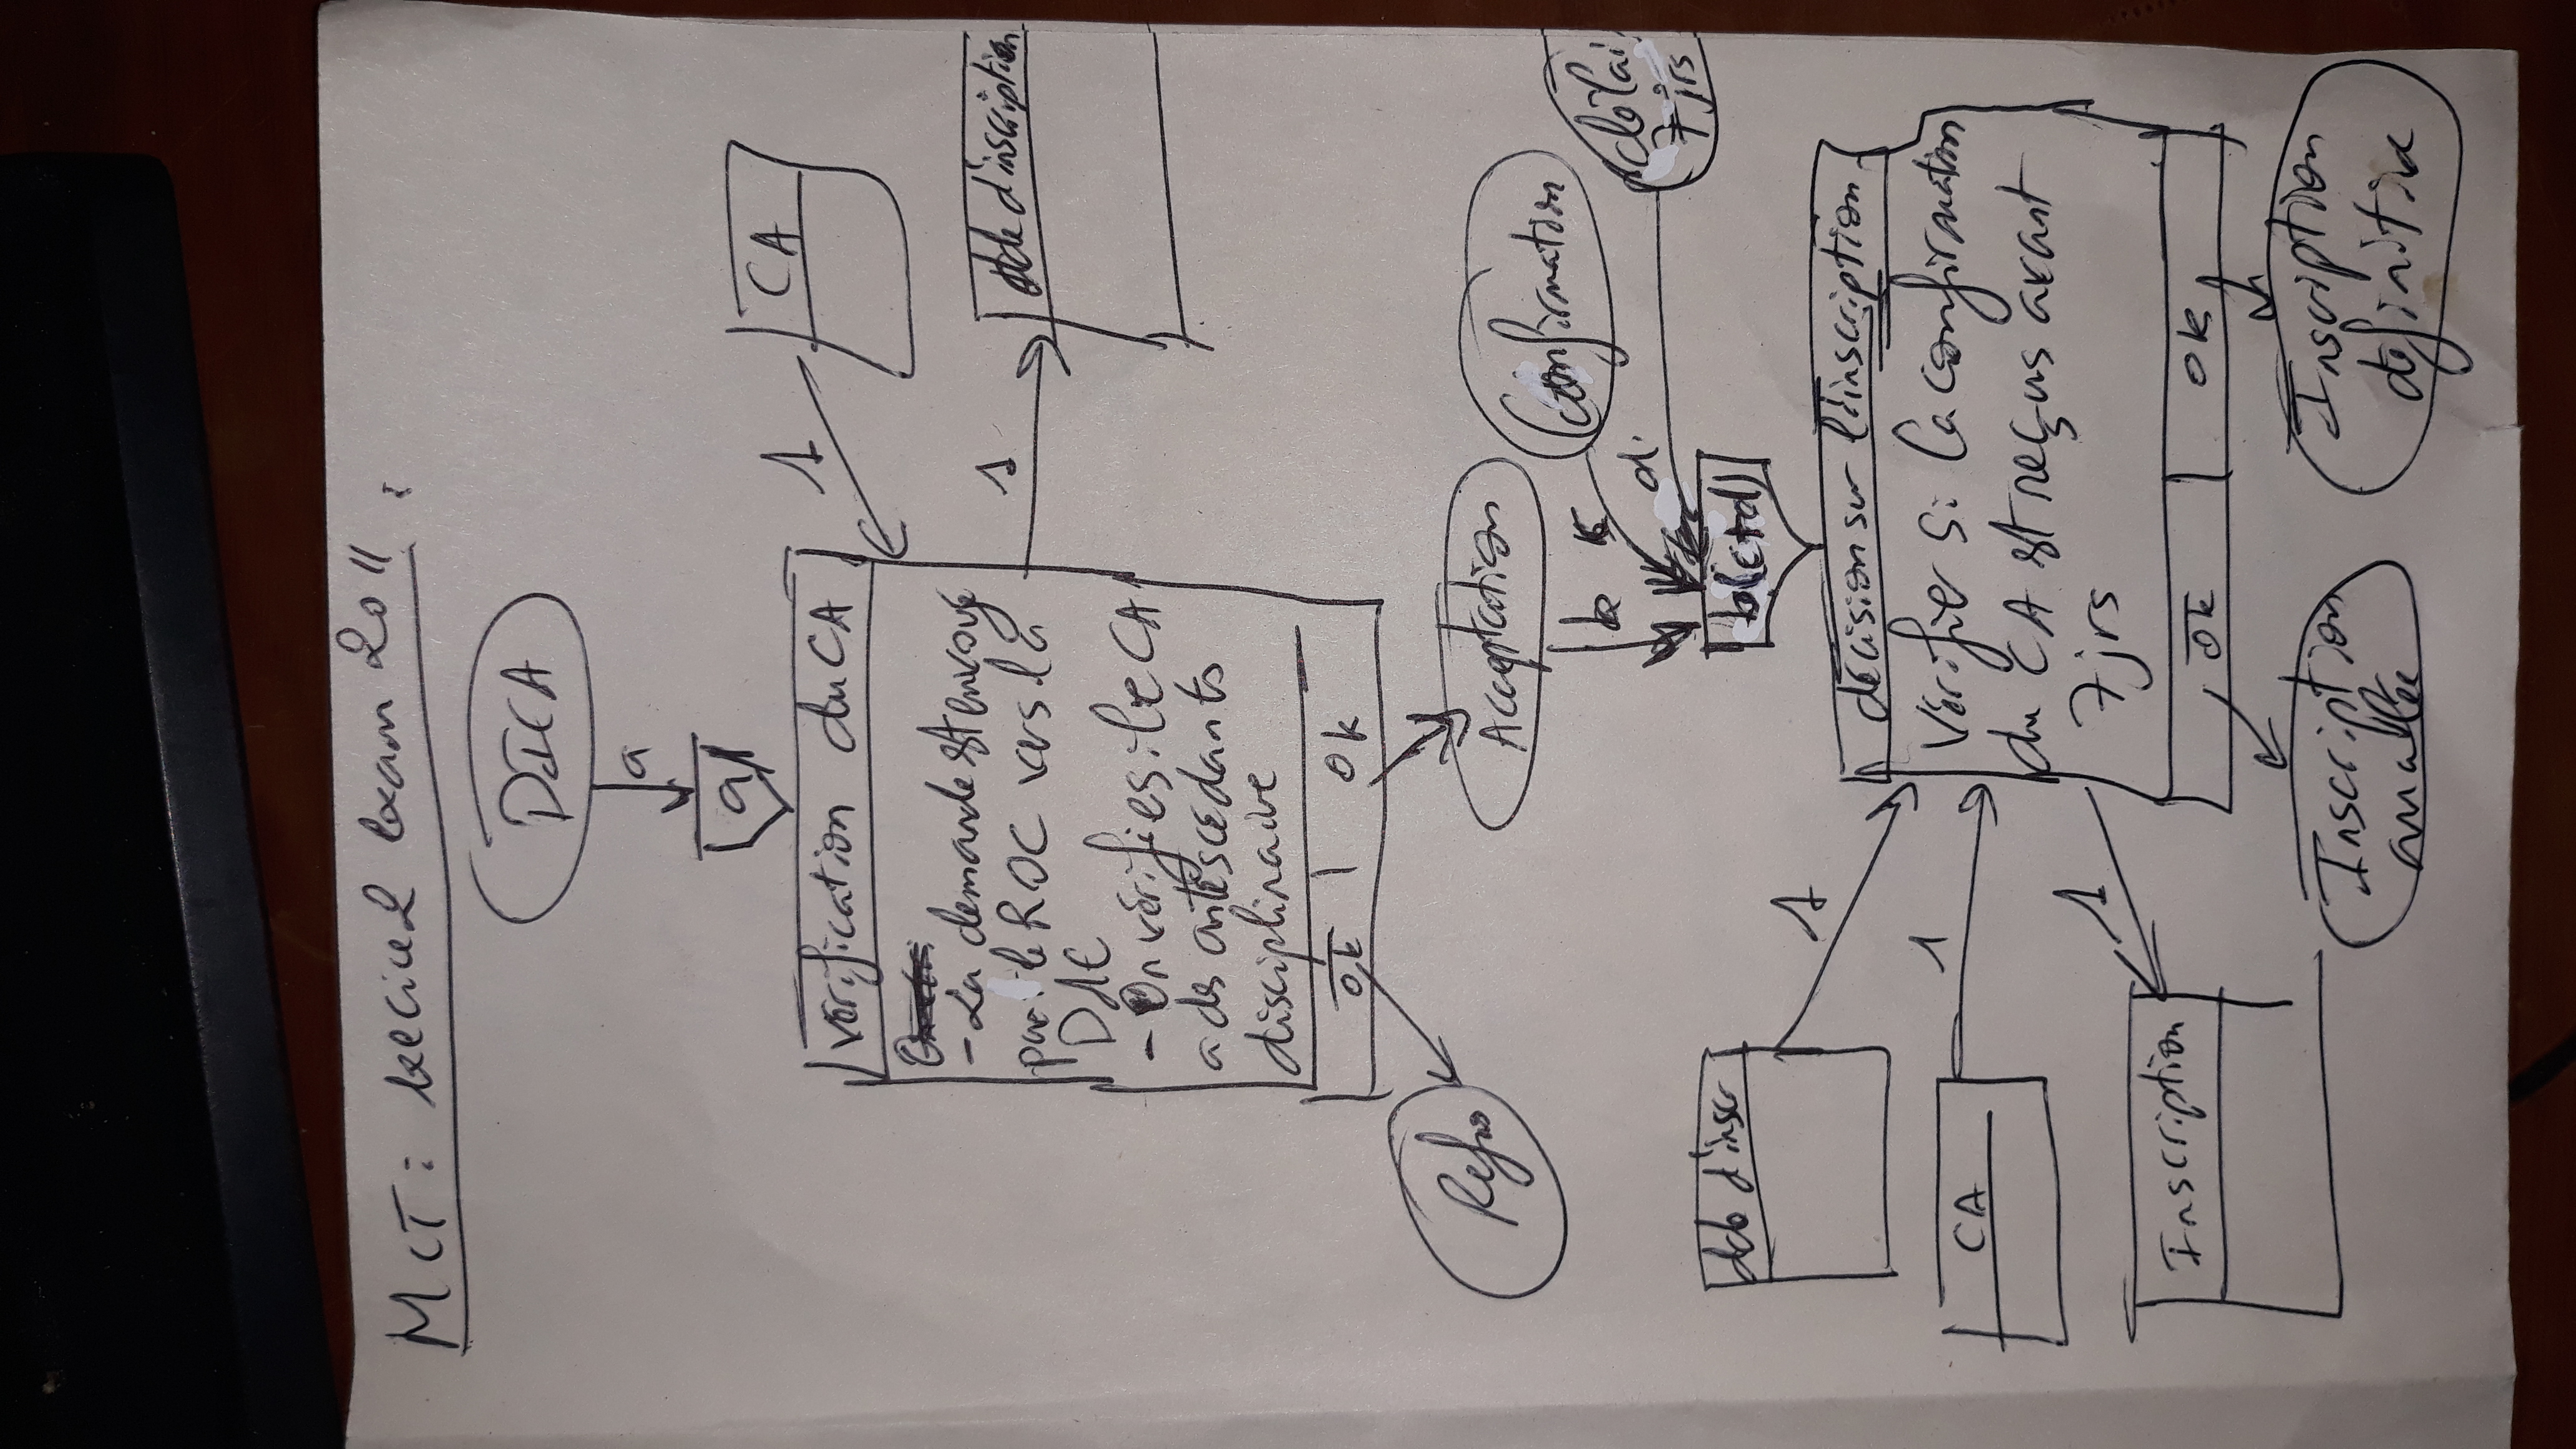 MCT : Exercice 2 Exam 2011 :
DICA
a
a
CA
1
vérification du CA
- La demande est envoyé
par le ROC vers la
DAE
1
dde d'inscription
- On vérifie si le CA
a des antéscédants
disciplinaire
ok
ok
Refus
Acceptation
Confirmation
délai
7 jrs
b
c
d
b(c+d)
dde d'inscr
1
décision sur l'inscription
CA
1
Vérifier si la confirmation
du CA est reçus avant
7 jrs
1
Inscription
ok
ok
Inscription
annulée
Inscription
définitive